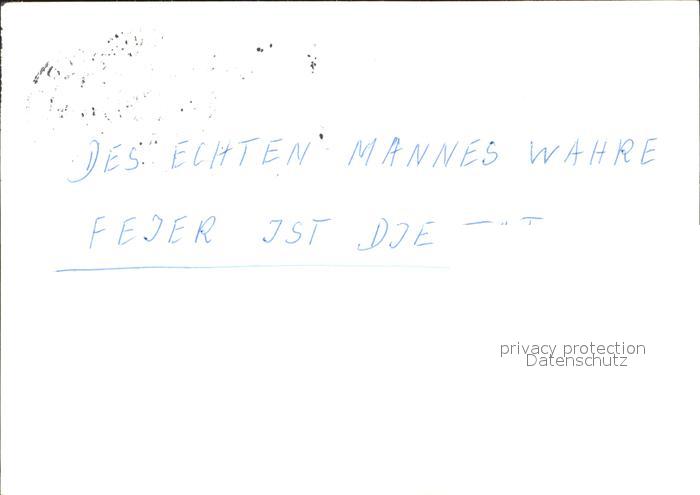 DES ECHTEN MANNES WAHRE
FEIER IST DIE
privacy protection
Datenschutz